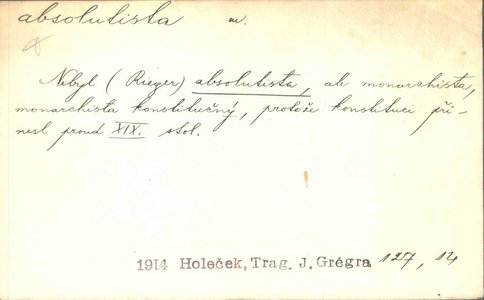 absolutista m.
Nebyl (Rieger) absolutista, ale monarchista,
monarchista konstitučný, protože konstituci při-
nesl proud XIX. stol.
1914 Holeček, Trag. J. Grégra 127, 14